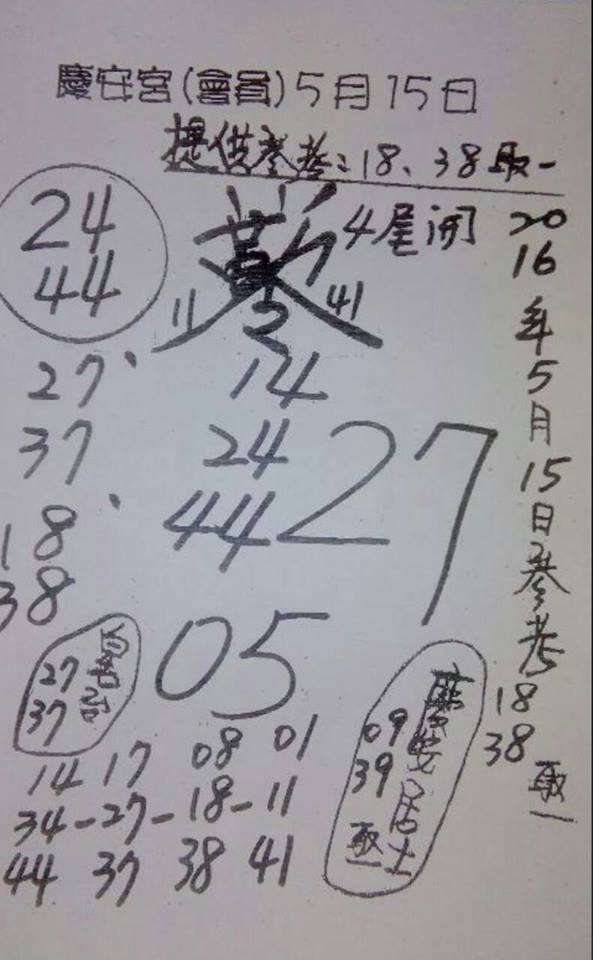 慶安宮(會員)5月15日
提供參考:18、38取一
24
44
4尾開
11
41
27
37
18
38
14
24
44
27
05
27
37
14 17 08 01
34-27-18-11
44 37 38 41
慶安居士
09
39
取一
2016年5月15日參考
18
38
取一